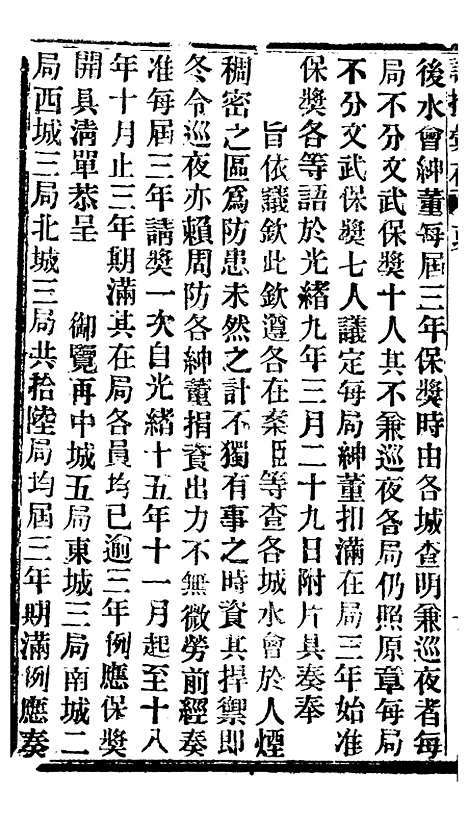 後水會紳董每屆三年保獎時由各城查明兼巡夜者每
局不分文武保獎十人其不兼巡夜各局仍照原章每局
不分文武保獎七人議定每局紳董扣滿在局三年始准
保獎各等語於光緒九年三月二十九日附片具奏奉
旨依議欽此欽遵各在案臣等查各城水會於人煙
稠密之區爲防患未然之計不獨有事之時資其捍禦即
冬令巡夜亦賴周防各紳董捐資出力不無微勞前經奏
准每屆三年請獎一次自光緒十五年十一月起至十八
年十月止三年期滿其在局各員均已逾三年例應保獎
開具淸單恭呈　御覽再中城五局東城三局南城二
局西城三局北城三局共拾陸局均屆三年期滿例應奏